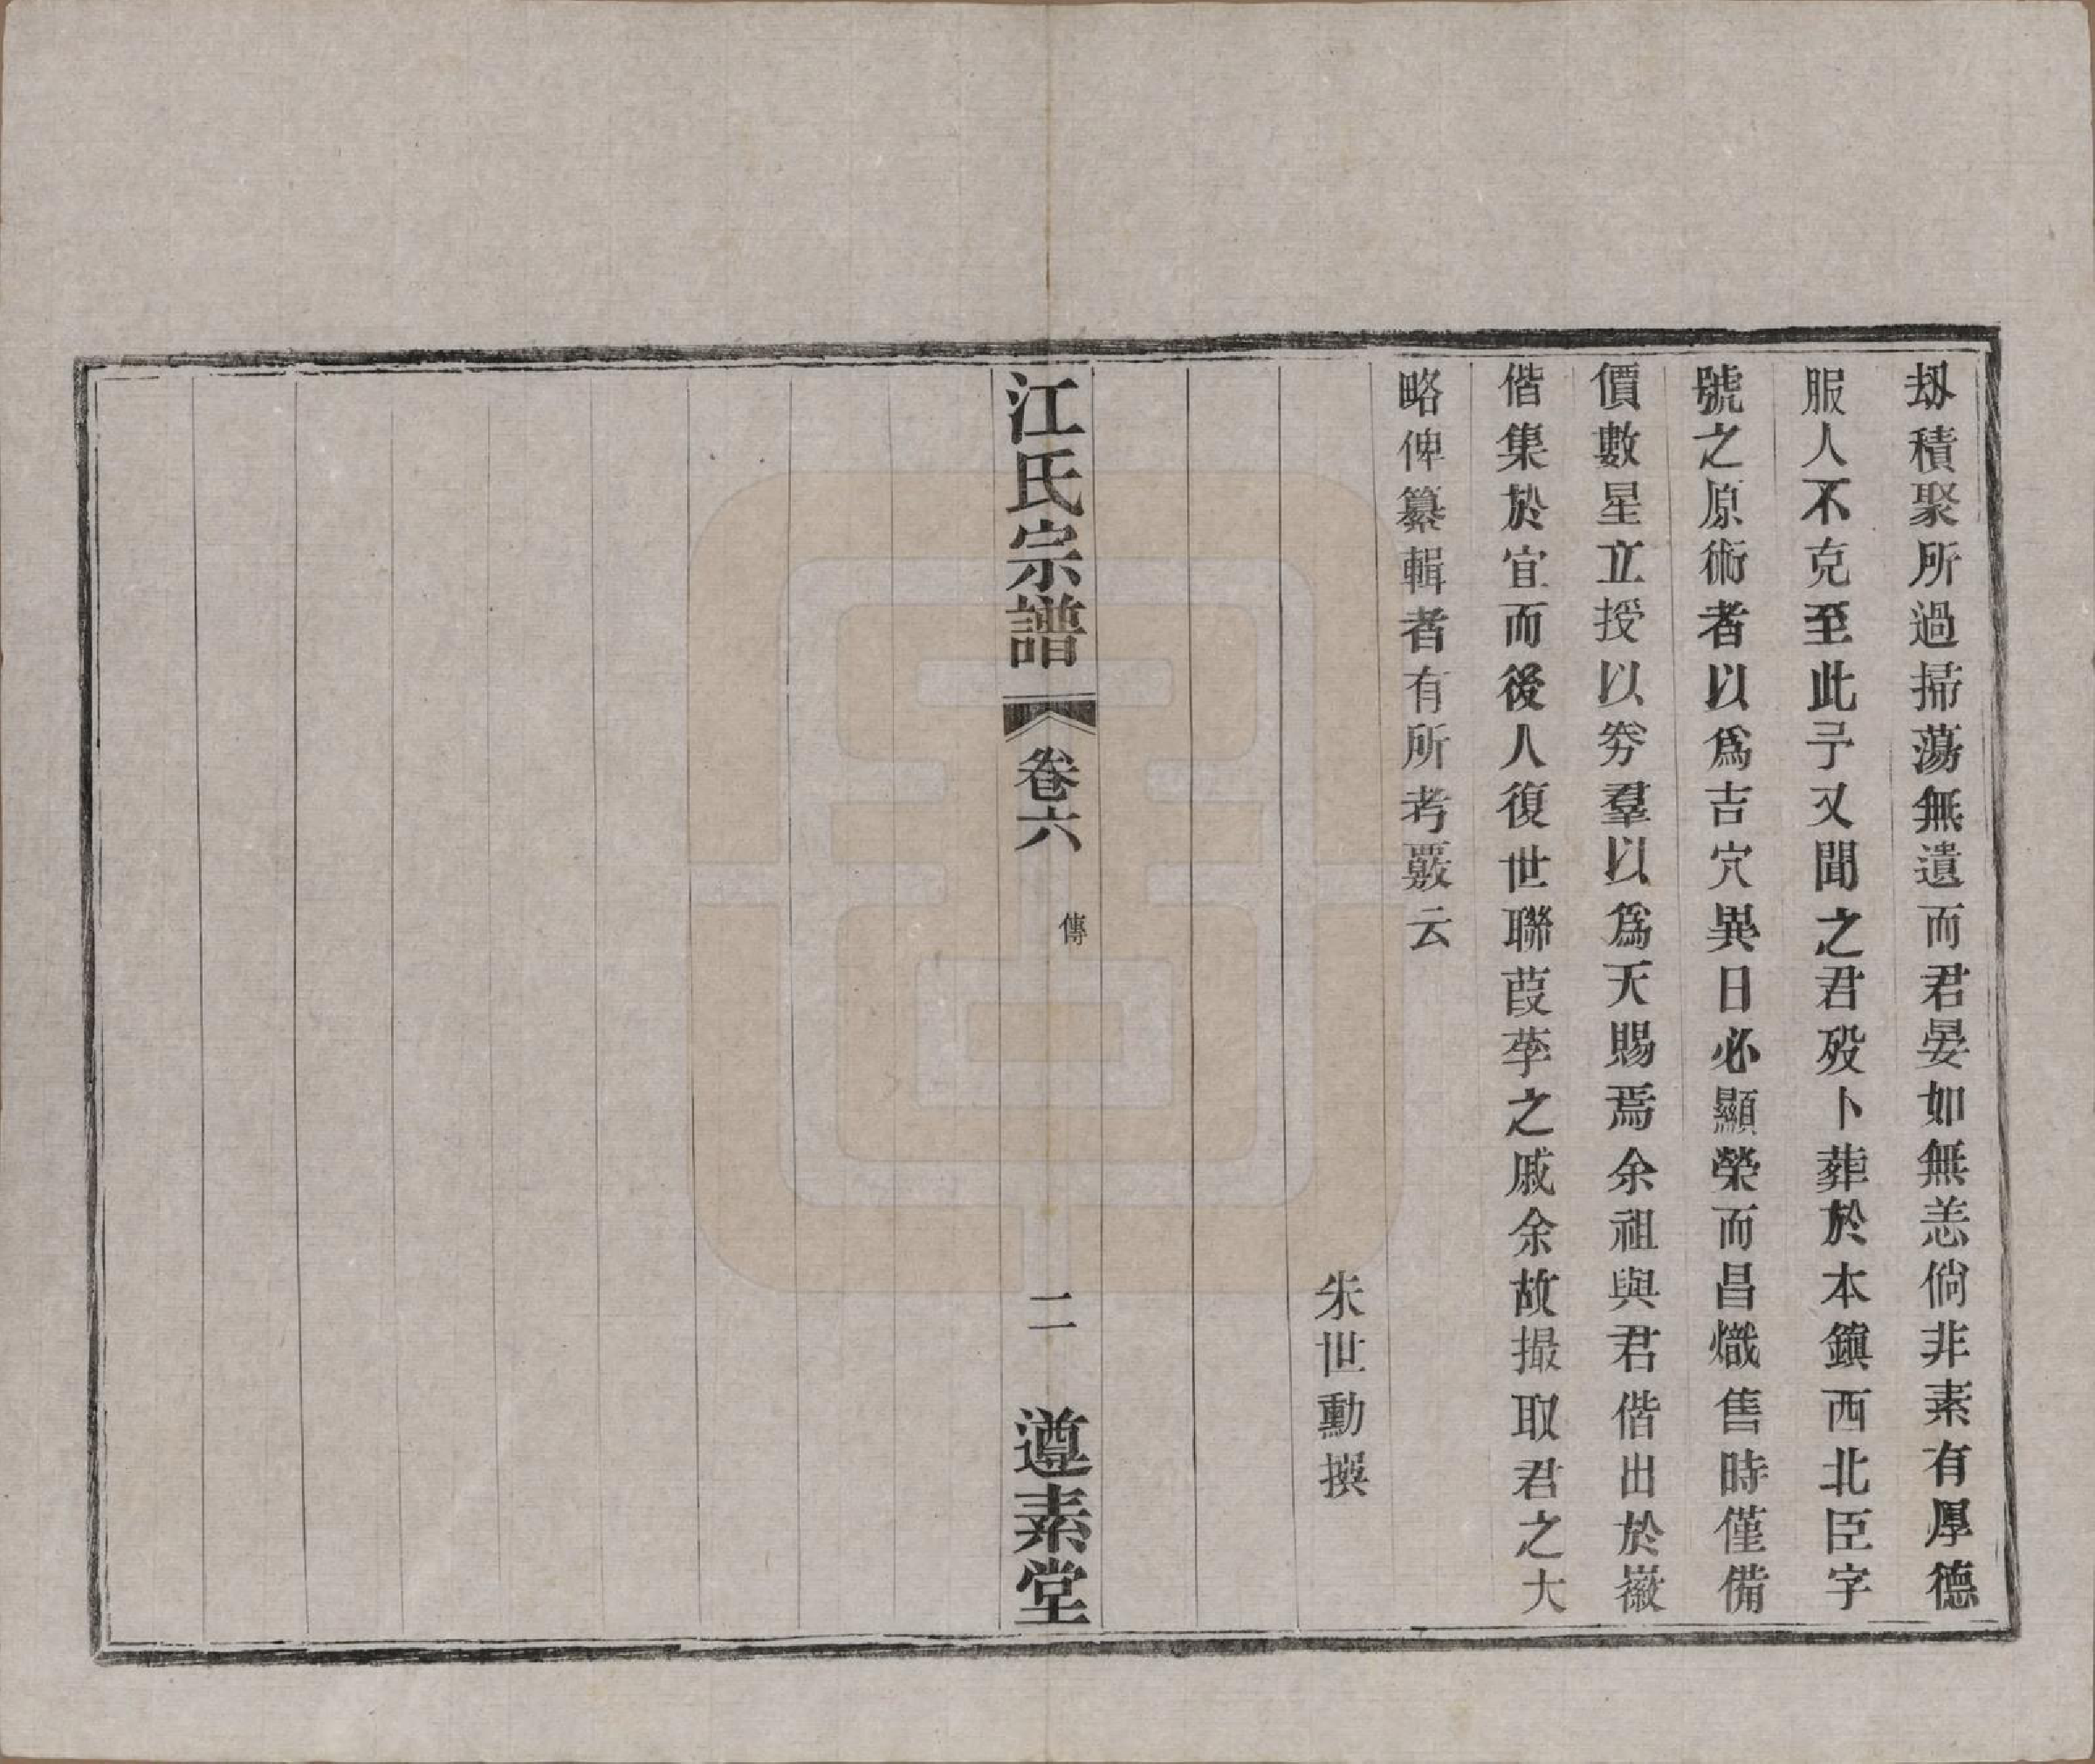 刼積聚所過掃蕩無遺而君晏如無恙倘非素有厚德
服人不克至此予又聞之君歿卜葬於本鎭西北臣字
號之原術者以爲吉穴異日必顯榮而昌熾售時僅備
價數星立授以券羣以爲天賜焉余祖與君偕出於徽
偕集於宜而後人復世聯葭莩之戚余故撮取君之大
略俾纂輯者有所考覈云
朱世勳撰
江氏宗譜
卷六
傳
二
遵素堂